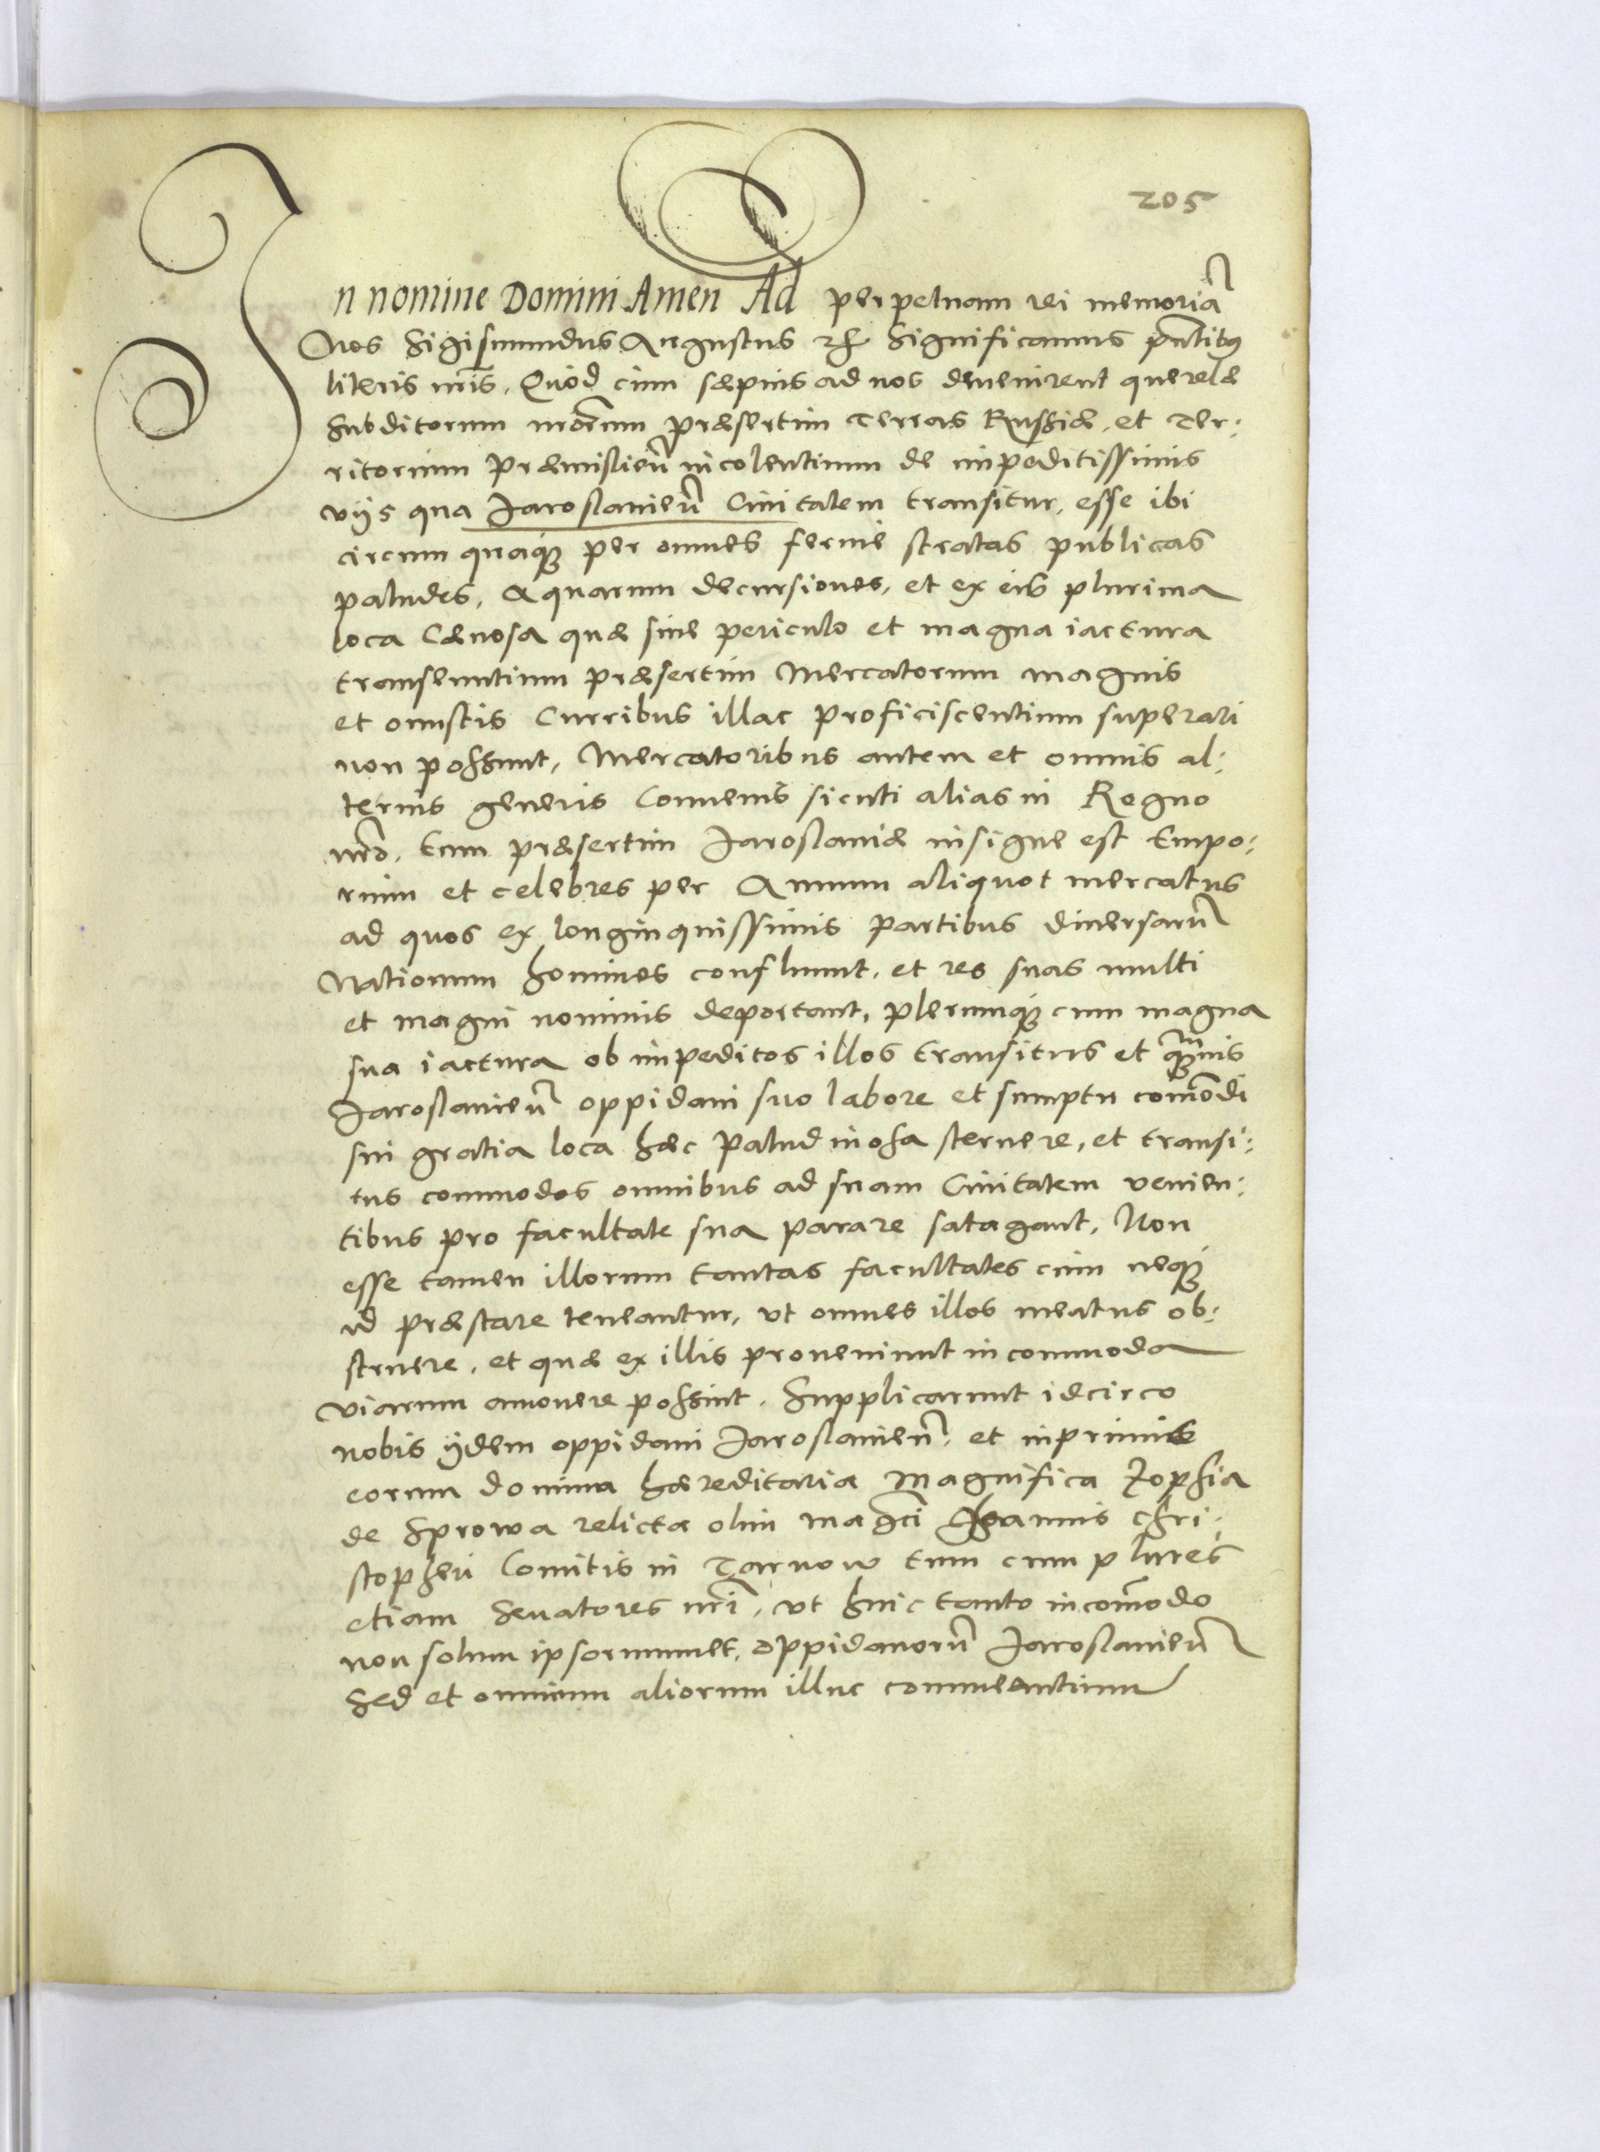 205
In nomine Domini Amen Ad perpetuam rei memoriã
Nos Sigismundus Augustus etc Significamus pñtibus
literis nr̃is. Quod cum sæpius ad nos devenirent querelæ
Subditorum nr̃orum præsertim Terras Russiæ, et Ter-
ritorium Præmislien̄ incolentium de impeditissimis
vijs qua Jaroslavien̄ Civitatem transitur, esse ibi
circum quaque per omnes fermè stratas publicas
paludes, Aquarum decursiones, et ex eis plurima
loca Cænosa quæ sine periculo et magna iactura
transeuntium præsertim Mercatorum magnis
et onustis Curribus illac proficiscentium superari
non possunt, Mercatoribus autem et omnis al-
terius generis Convenis sicuti alias in Regno
nr̃o. tum præsertim Jaroslaviæ insigne est Empo-
rium et celebres per Annum aliquot mercatus
ad quos ex longinquissimis partibus diversarũ
Nationum homines confluunt, et res suas multi
et magni nominis deportant, plerumque cum magna
sua iactura ob impeditos illos transitus et quãvis
Jaroslavien̄ oppidani suo labore et sumptu comõdi
sui gratia loca hæc paludinosa sternere, et transi-
tus commodos omnibus ad suam Civitatem venien-
tibus pro facultate sua parare satagant, Non
esse tamen illorum tantas facultates cum neque
id præstare teneantur, ut omnes illos meatus ob-
struere, et quæ ex illis proveniunt incommoda
viarum amovere possint. Supplicarunt idcirco
nobis ijdem oppidani Jaroslavien̄, et inprimis
eorum domina hæreditaria Magnifica Zophia
de Sprowa relicta olim Magci Joannis Chri-
stopheri Comitis in Tarnow tum cum plures
etiam Senatores nr̃i, ut huic tanto incom̃odo
non solum ipsorummet, oppidanorũ Jaroslavien̄
Sed et omnium aliorum illuc commeantium